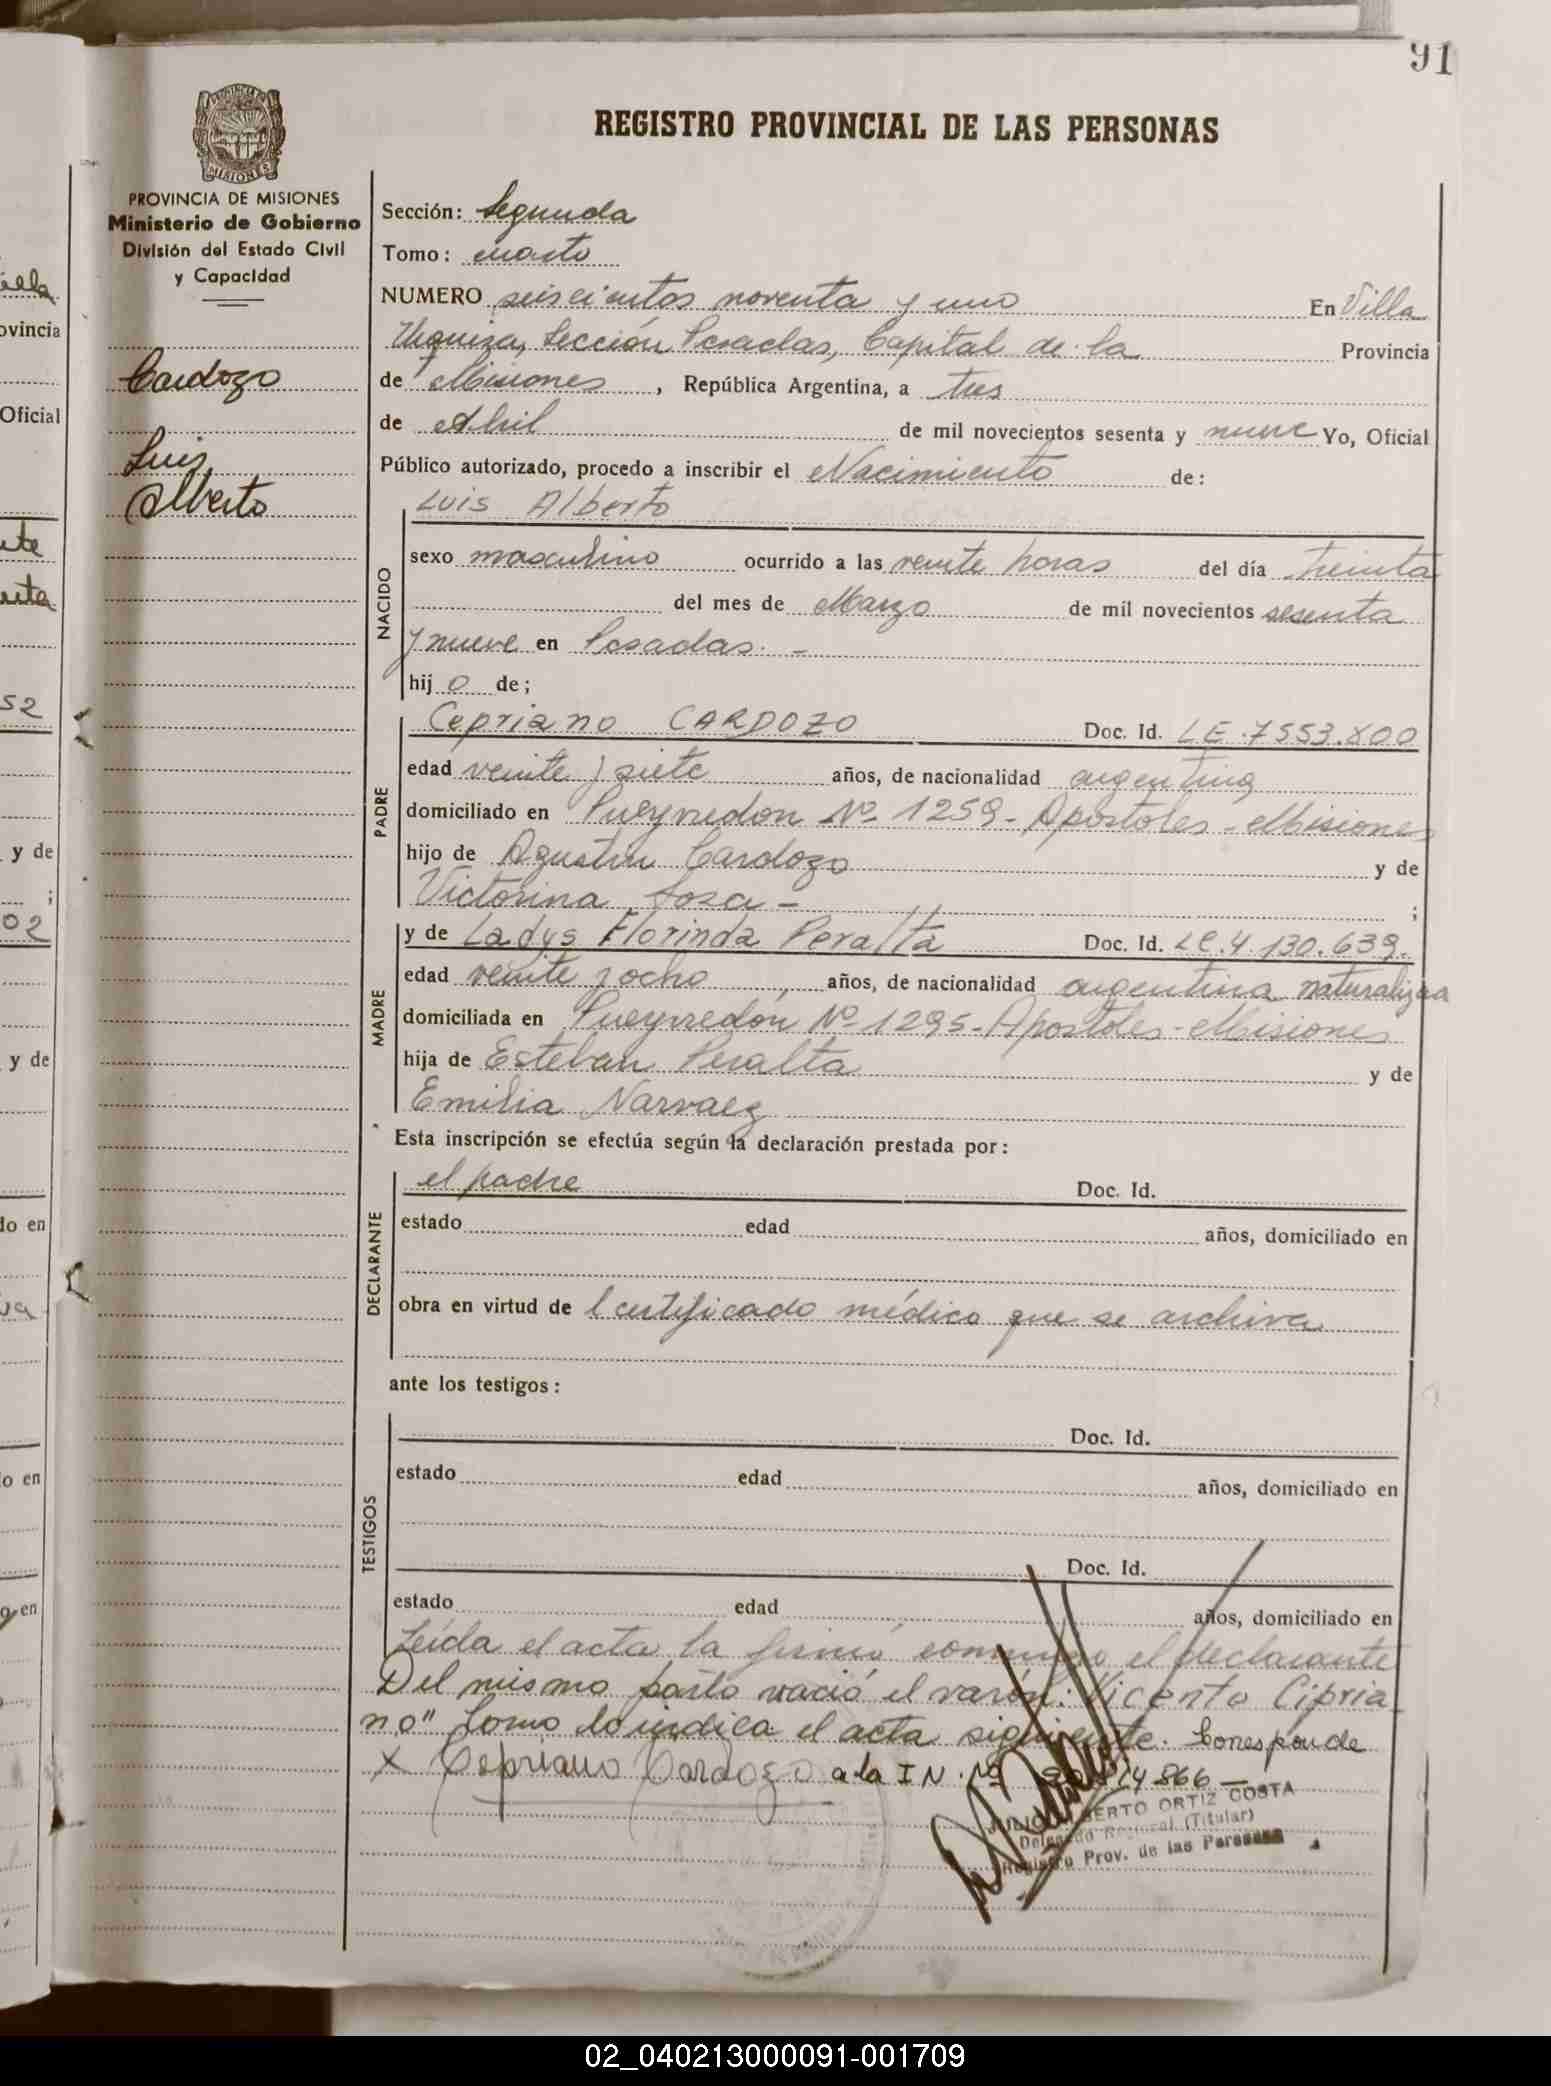 91
REGISTRO PROVINCIAL DE LAS PERSONAS
MISIONES
PROVINCIA DE MISIONES
Ministerio de Gobierno
División del Estado Civil
y Capacidad
Cardozo
Luis
Alberto
Sección: Segunda
Tomo: cuarto
NUMERO seiscientos noventa y uno En Villa
Urquiza, Sección Posadas, Capital de la Provincia
de Misiones, República Argentina, a tres
de Abril de mil novecientos sesenta y nueve Yo, Oficial
Público autorizado, procedo a inscribir el Nacimiento de:
Luis Alberto
NACIDO
sexo masculino ocurrido a las veinte horas del día treinta
del mes de Marzo de mil novecientos sesenta
y nueve en Posadas. -
hij o de;
PADRE
Cepriano CARDOZO Doc. Id. LE.7553.800
edad veinte y siete años, de nacionalidad argentina
domiciliado en Pueyrredon Nº 1259- Apostoles - Misiones
hijo de Agustin Cardozo y de
Victorina Sosa - ;
MADRE
y de Ladys Florinda Peralta Doc. Id. LC.4.130.639.
edad veinte y ocho, años, de nacionalidad argentina naturaliza
domiciliada en Pueyrredón Nº 1295- Apostoles - Misiones
hija de Esteban Peralta y de
Emilia Narvaez
Esta inscripción se efectúa según la declaración prestada por:
DECLARANTE
el padre Doc. Id.
estado edad años, domiciliado en
obra en virtud de l certificado médico que se archiva
ante los testigos:
TESTIGOS
Doc. Id.
estado edad años, domiciliado en
Doc. Id.
estado edad años, domiciliado en
Leída el acta la firmó conmigo el declarante
Del mismo parto nació el varón: Vicente Cipria-
no" Como lo indica el acta siguiente. Corresponde
X Cepriano Cardozo a la I N. Nº
ORTIZ COSTA
Delegado (Titular)
Registro Prov. de las Personas
02_040213000091-001709